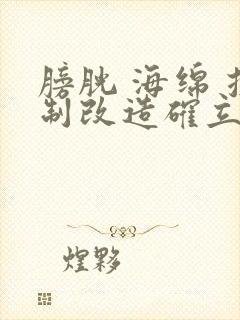 膀胱 海绵
制改造確立
煌夥